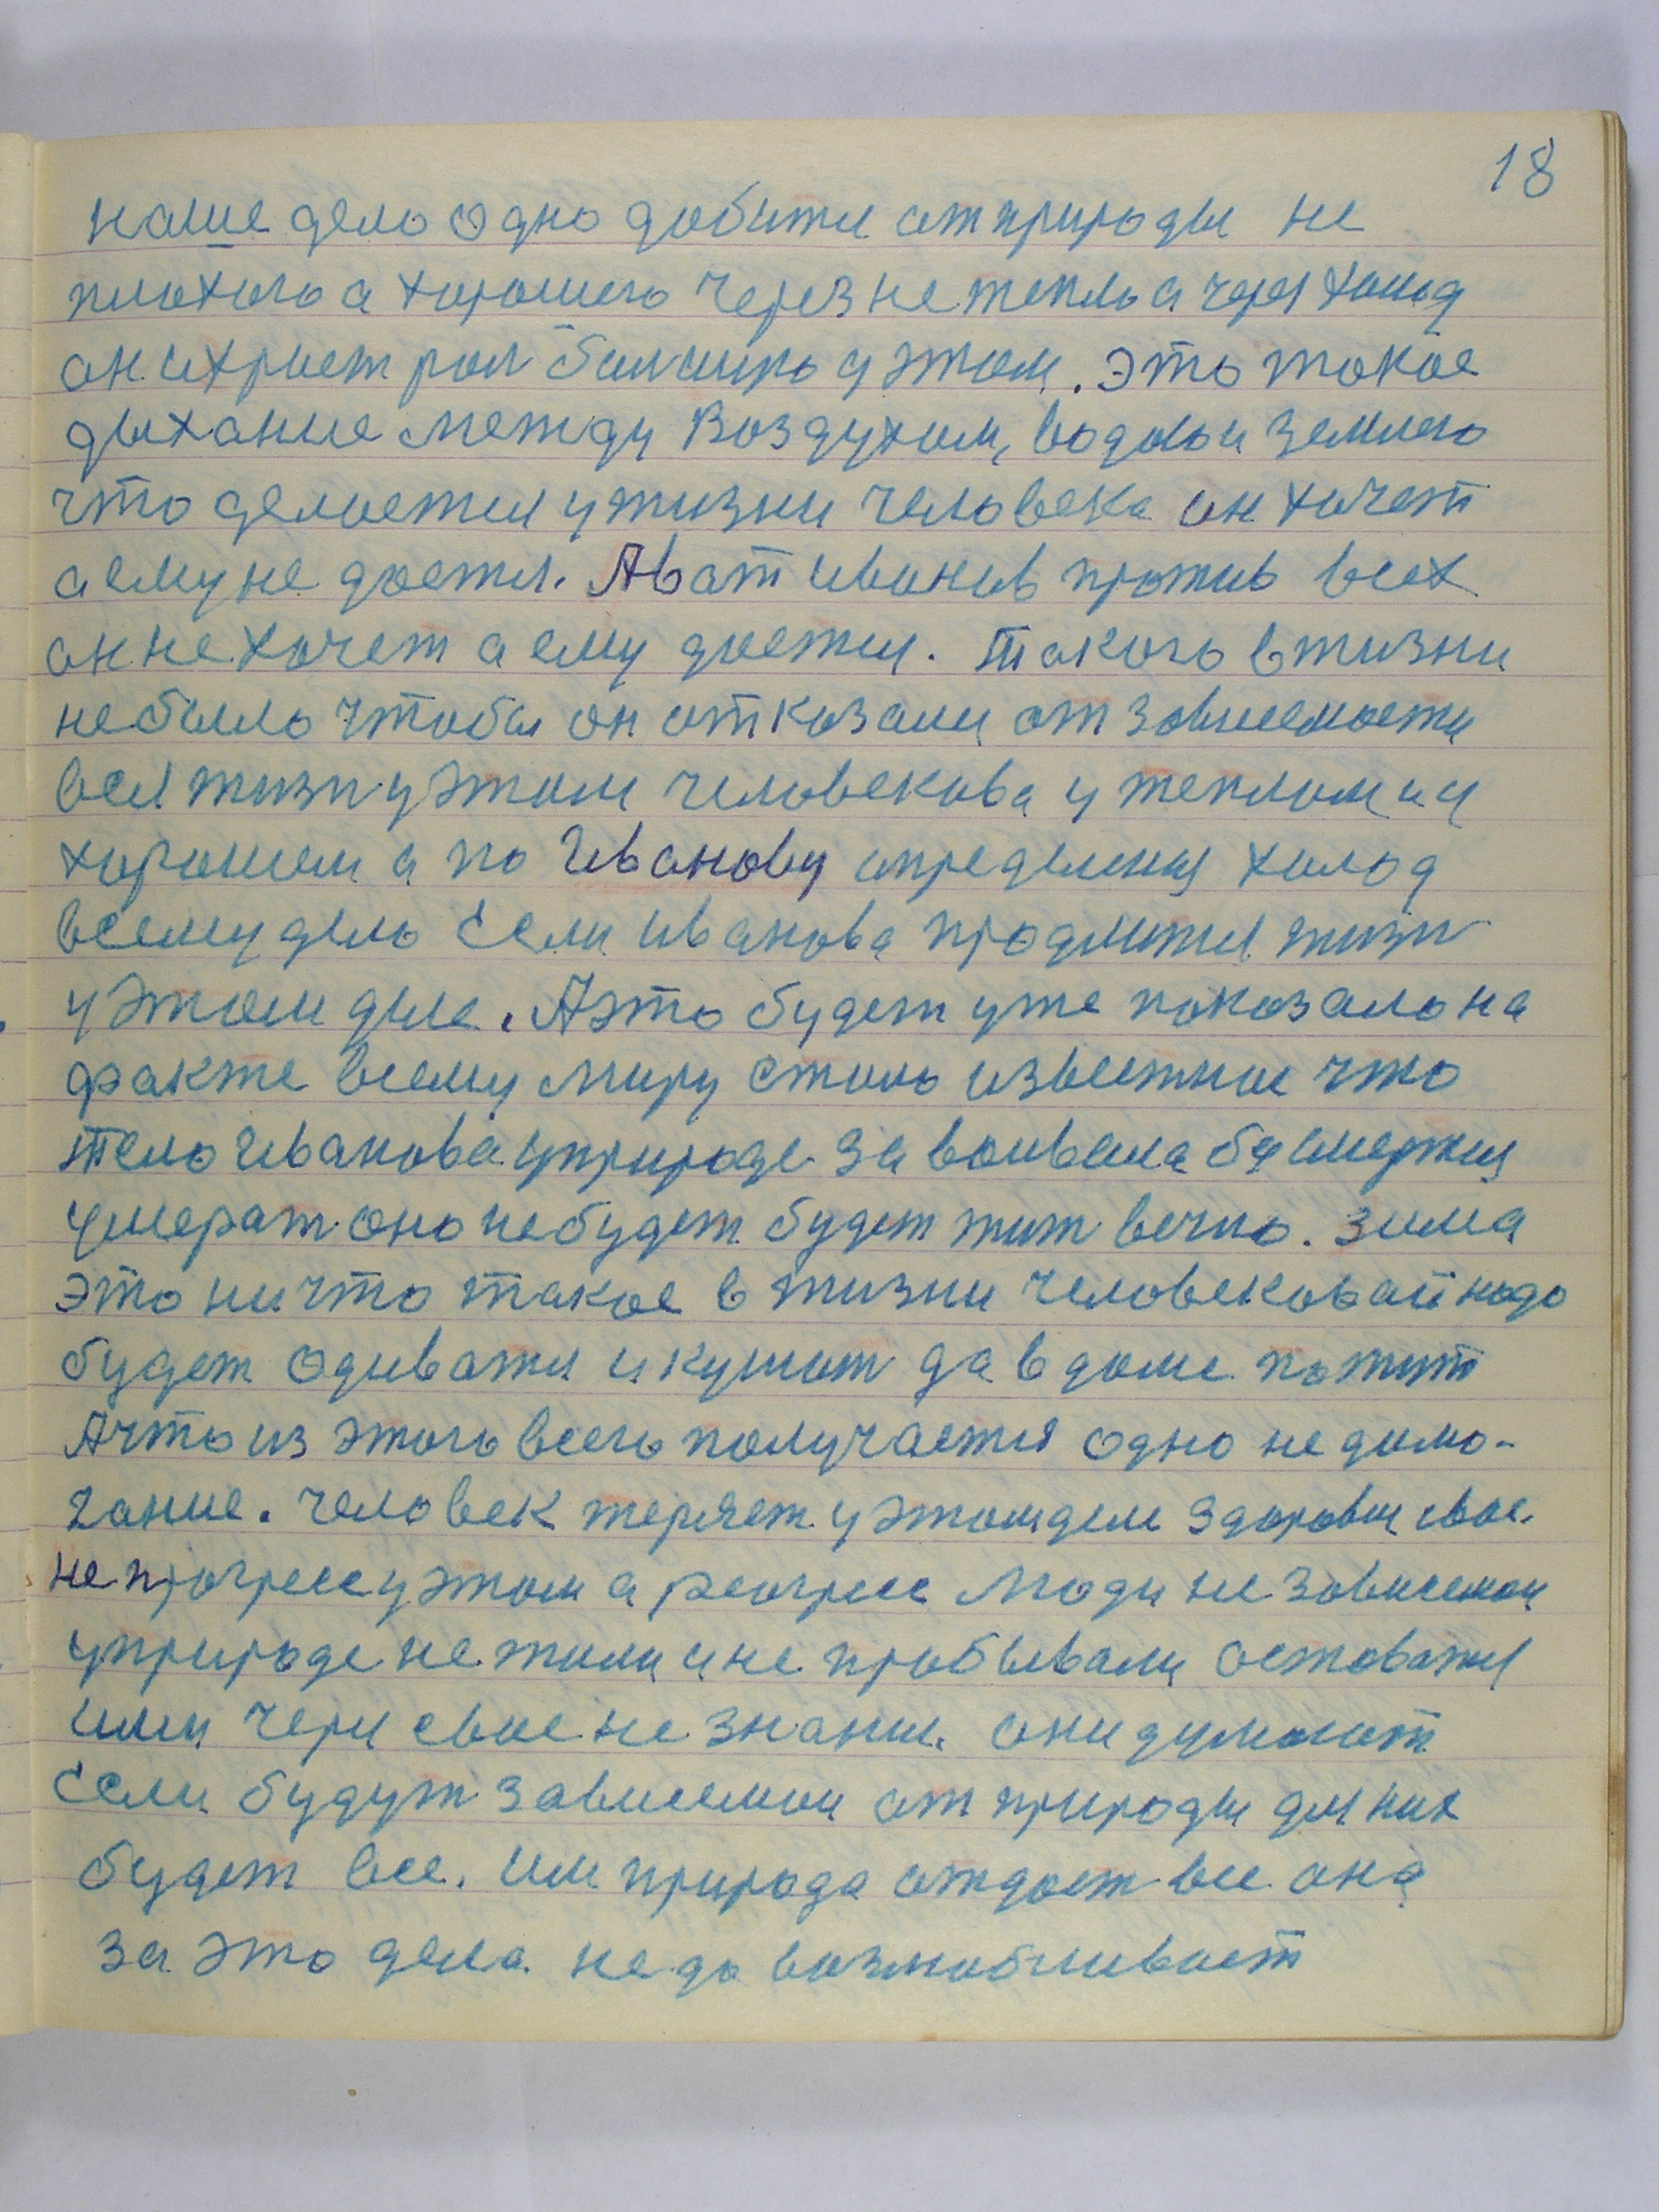 18
наше дело одно добится от природы не
плохого а хорошего через не тепло а через холод
он ихрает рол балшую у этом. Это такое
дыхание между Воздухом, водою и землею
что делается у жизни человека он хочет
а ему не дается. А вот иванов против всех
он не хочет а ему дается. Такого в жизни
не было чтобы он отказали от зависемости
вся жизн у этом человекова у теплом и у
хорошем а по Иванову определения холод
всему дело Если иванова продлится жизн
у этом деле. А это будет уже показало на
факте всему миру стало известное что
тело Иванова у природе завоивала бесмертия
умерат оно не будет будет жит вечно. Зима
это ничто такое в жизни человековай надо
будет одеватся и кушат да в доме пожит
А что из этого всего получается одно недомо-
гание. Человек теряет у этом деле здоровие свое.
не прогресс у этом а регресс Люди не зависемои
у природе не жили и не пробывали оставатся
ими через свое не знание. они думают
Если будут зависемои от природы для них
будет все. Им природа отдает все она
за это дела недовазлюбливает